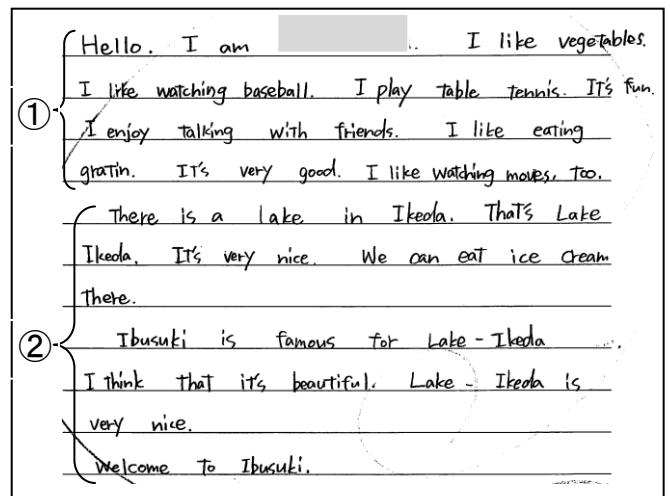 Hello. I am . I like vegetables.
① I like watching baseball. I play table tennis. It's fun.
I enjoy talking with friends. I like eating
gratin. It's very good. I like watching moves, too.
There is a lake in Ikeda. That's Lake
Ikeda. It's very nice. We can eat ice cream
there.
② Ibusuki is famous for Lake - Ikeda .
I think that it's beautiful. Lake - Ikeda is
very nice.
Welcome to Ibusuki.